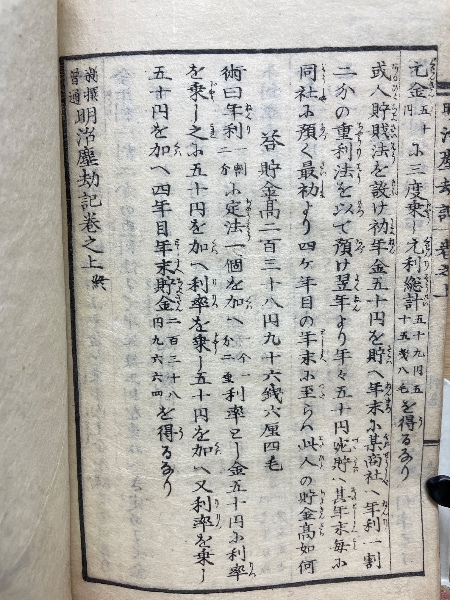 明治塵劫記 巻之上
元金五十円に三度乗し元利総計五十九円五十五銭八毛を得るなり
或人貯法を設け初年金五十円を貯へ年末に某商社へ年利一割
二分の重利法を以て預け翌年より年々五十円宛貯へ其年末毎に
同社に預く最初より四ケ年目の年末に至らハ此人の貯金高如何
答 貯金高二百三十八円九十六銭六厘四毛
術曰年利一割二分に定法一個を加へ重利率とし金五十円に利率
を乗し之に五十円を加へ利率を乗し五十円を加へ又利率を乗し
五十円を加へ四年目年末貯金二百三十八円九六六四を得るなり
新撰普通明治塵劫記巻之上 終